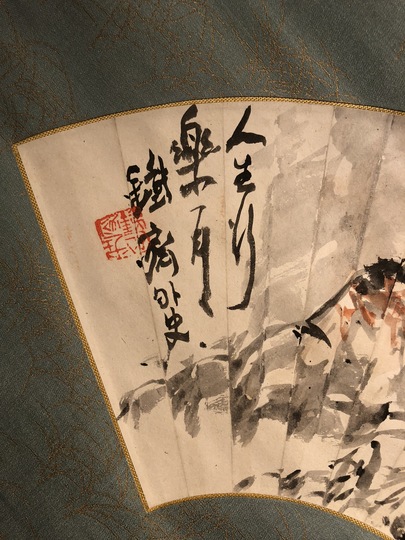 人生行
樂耳
鐵齋外史